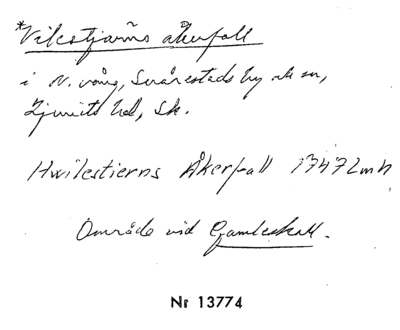 *Vilestjärns åkerfall
i N. vång, Svarestads by och sn,
Ljunits hd, Sk.
Hwilestierns Åkerfall 1747 Lmh
Område vid Gamleskall.
Nr 13774